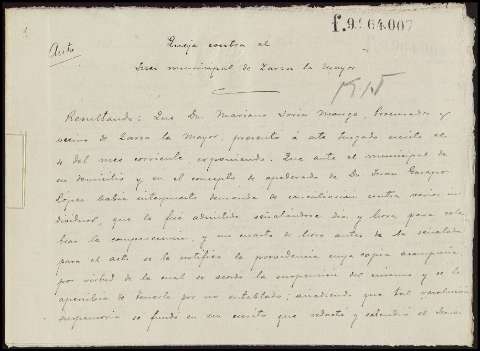 f. 9.964.007
Auto
Queja contra el
Juez municipal de Zarza la Mayor
Resultando: Que Dn. Mariano Monge, Procurador y
vecino de Zarza la Mayor, presentó á este Juzgado escrito el
4 del mes corriente, exponiendo: Que ante el municipal de
su domicilio y en el concepto de apoderado de Dn. Juan
López había interpuesto demanda de conciliacion contra varios in
dividuos, que le fué admitida señalandose dia y hora para cele
brar la comparecencia, y un cuarto de hora antes de la señalada
para el acto se le notificó la providencia cuya copia acompaña,
por virtud de la cual se acordó la suspension del mismo y se le
apercibia de tenerle por no entablado; añadiendo que tal resolucion
se funda en un escrito que redactó y el